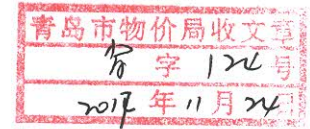 青岛市物价局收文章
字124号
2017年11月24日